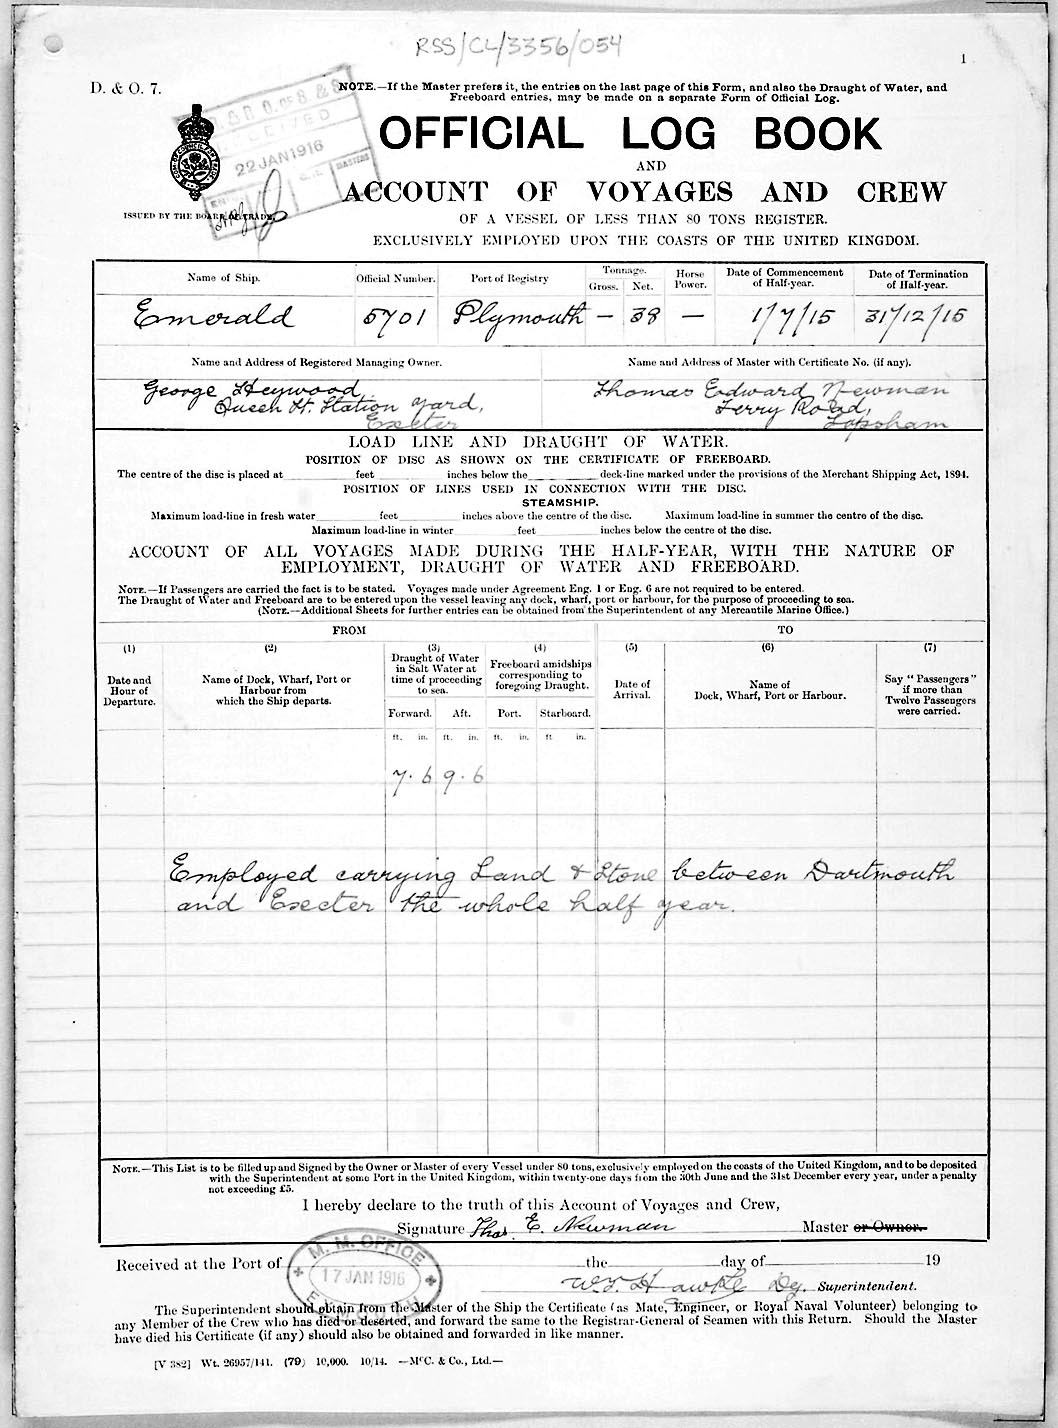 RSS/CL/3356/054
1
D. & O. 7.
NOTE.—If the Master prefers it, the entries on the last page of this Form, and also the Draught of Water, and
Freeboard entries, may be made on a separate Form of Official Log.
22 JAN 1916
MASTERS
OFFICIAL LOG BOOK
AND
ACCOUNT OF VOYAGES AND CREW
ISSUED BY THE BOARD OF TRADE.
OF A VESSEL OF LESS THAN 80 TONS REGISTER.
EXCLUSIVELY EMPLOYED UPON THE COASTS OF THE UNITED KINGDOM.
Name of Ship. Official Number. Port of Registry Tonnage. Gross. Net. Horse Power. Date of Commencement of Half-year. Date of Termination of Half-year.
Emerald 5701 Plymouth — 38 — 1/7/15 31/12/15
Name and Address of Registered Managing Owner. Name and Address of Master with Certificate No. (if any).
George Heywood, Thomas Edward Newman
Queen St. Station Yard, Ferry Road,
Exeter Topsham
LOAD LINE AND DRAUGHT OF WATER.
POSITION OF DISC AS SHOWN ON THE CERTIFICATE OF FREEBOARD.
The centre of the disc is placed at feet inches below the deck-line marked under the provisions of the Merchant Shipping Act, 1894.
POSITION OF LINES USED IN CONNECTION WITH THE DISC.
STEAMSHIP.
Maximum load-line in fresh water feet inches above the centre of the disc. Maximum load-line in summer the centre of the disc.
Maximum load-line in winter feet inches below the centre of the disc.
ACCOUNT OF ALL VOYAGES MADE DURING THE HALF-YEAR, WITH THE NATURE OF
EMPLOYMENT, DRAUGHT OF WATER AND FREEBOARD.
NOTE.—If Passengers are carried the fact is to be stated. Voyages made under Agreement Eng. 1 or Eng. 6 are not required to be entered.
The Draught of Water and Freeboard are to be entered upon the vessel leaving any dock, wharf, port or harbour, for the purpose of proceeding to sea.
(NOTE.—Additional Sheets for further entries can be obtained from the Superintendent of any Mercantile Marine Office.)
FROM TO
(1) (2) (3) (4) (5) (6) (7)
Date and Hour of Departure. Name of Dock, Wharf, Port or Harbour from which the Ship departs. Draught of Water in Salt Water at time of proceeding to sea. Freeboard amidships corresponding to foregoing Draught. Date of Arrival. Name of Dock, Wharf, Port or Harbour. Say "Passengers" if more than Twelve Passengers were carried.
Forward. Aft. Port. Starboard.
ft. in. ft. in. ft. in. ft in.
7.6 9.6
Employed carrying Sand & Stone between Dartmouth
and Exeter the whole half year.
NOTE.—This List is to be filled up and Signed by the Owner or Master of every Vessel under 80 tons, exclusively employed on the coasts of the United Kingdom, and to be deposited
with the Superintendent at some Port in the United Kingdom, within twenty-one days from the 30th June and the 31st December every year, under a penalty
not exceeding £5.
I hereby declare to the truth of this Account of Voyages and Crew,
Signature Thos. E. Newman Master or Owner.
Received at the Port of the day of 19
M. M. OFFICE
17 JAN 1916
Superintendent.
The Superintendent should obtain from the Master of the Ship the Certificate (as Mate, Engineer, or Royal Naval Volunteer) belonging to
any Member of the Crew who has died or deserted, and forward the same to the Registrar-General of Seamen with this Return. Should the Master
have died his Certificate (if any) should also be obtained and forwarded in like manner.
[V 382] Wt. 26957/141. (79) 10,000. 10/14. —McC. & Co., Ltd.—